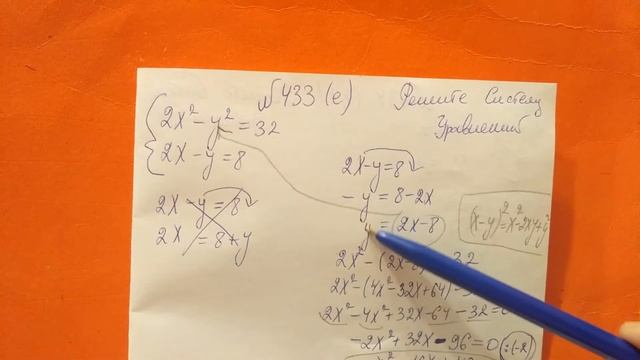 №433 (е) Решите систему
уравнений
{2x² - y² = 32
2x - y = 8
2x - y = 8
2x = 8 + y
2x - y = 8
- y = 8 - 2x
y = (2x - 8)
(x-y)² = x² - 2xy + y²
2x² - (2x-8
2x² - (4x² - 32x + 64) - 3
2x² - 4x² + 32x - 64 - 32 = 0
-2x² + 32x - 96 = 0 (:(-2))